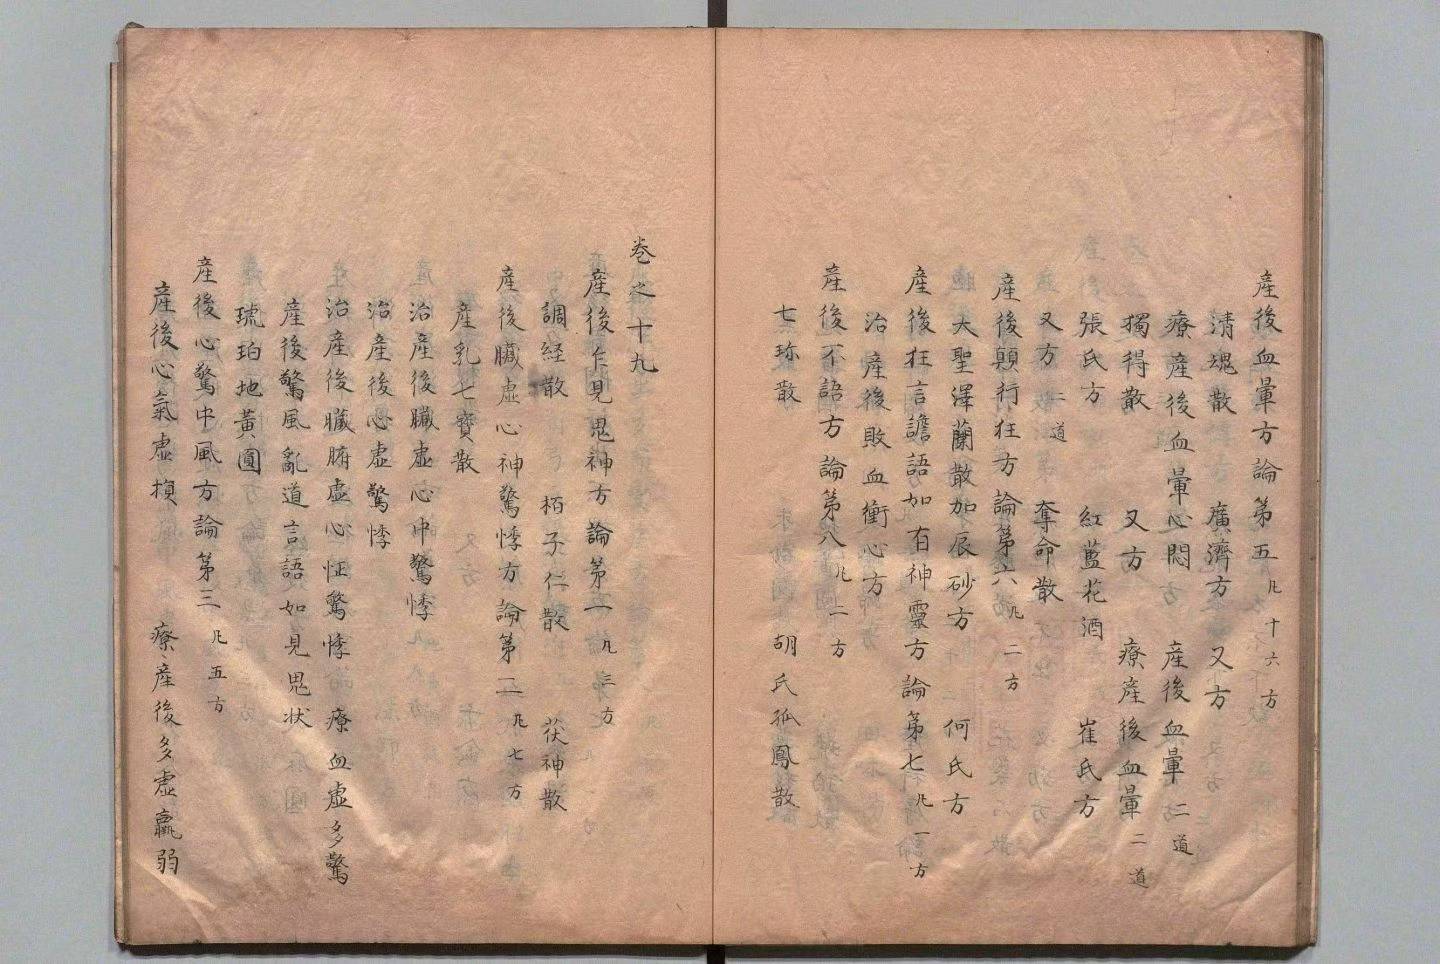 産後血暈方論第五凡十六方
清魂散 廣濟方 又方
療産後血暈心悶 産後血暈二道
獨得散 又方 療産後血暈二道
張氏方 紅藍花酒 崔氏方
又方二道 奪命散
産後顛行狂方論第六凡二方
大聖澤蘭散加辰砂方 何氏方
産後狂言譫語如有神靈方論第七凡一方
治産後敗血衝心方
産後不語方論第八凡二方
七珎散 胡氏孤鳳散
巻之十九
産後乍見鬼神方論第一凡三方
調経散 栢子仁散 茯神散
産後臓虚心神驚悸方論第二凡七方
産乳七寳散
治産後臓虚心中驚悸
治産後心虚驚悸
治産後臓腑虚心怔驚悸 療血虚多驚
産後驚風亂道言語如見鬼状
琥珀地黄圓
産後心驚中風方論第三凡五方
産後心氣虚損 療産後多虚羸弱